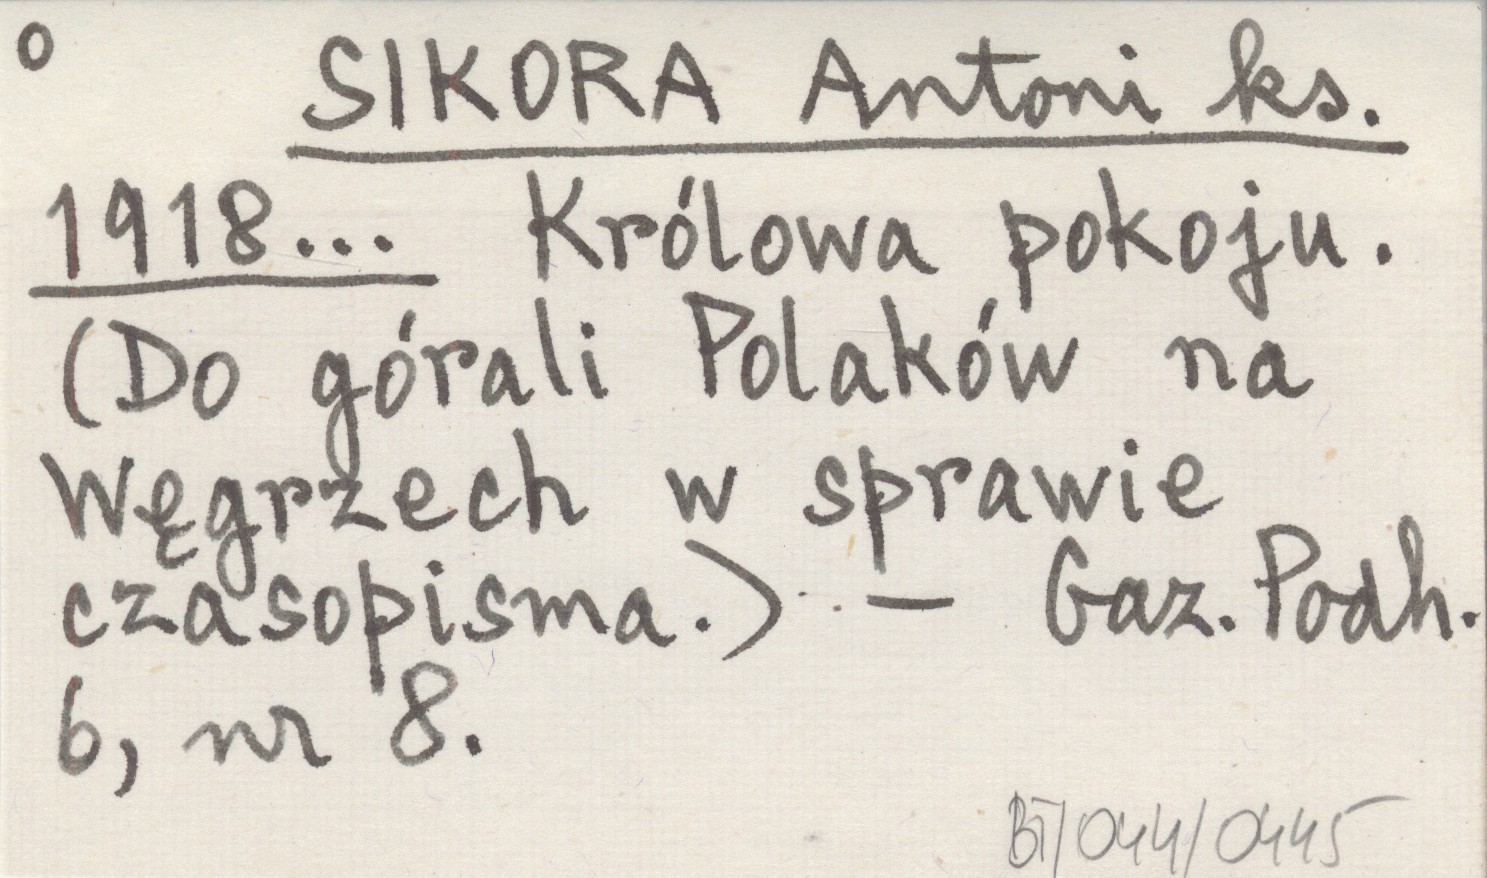 o SIKORA Antoni ks.
1918... Królowa pokoju.
(Do górali Polaków na
Węgrzech w sprawie
czasopisma.) – Gaz. Podh.
6, nr 8.
BT/044/0445